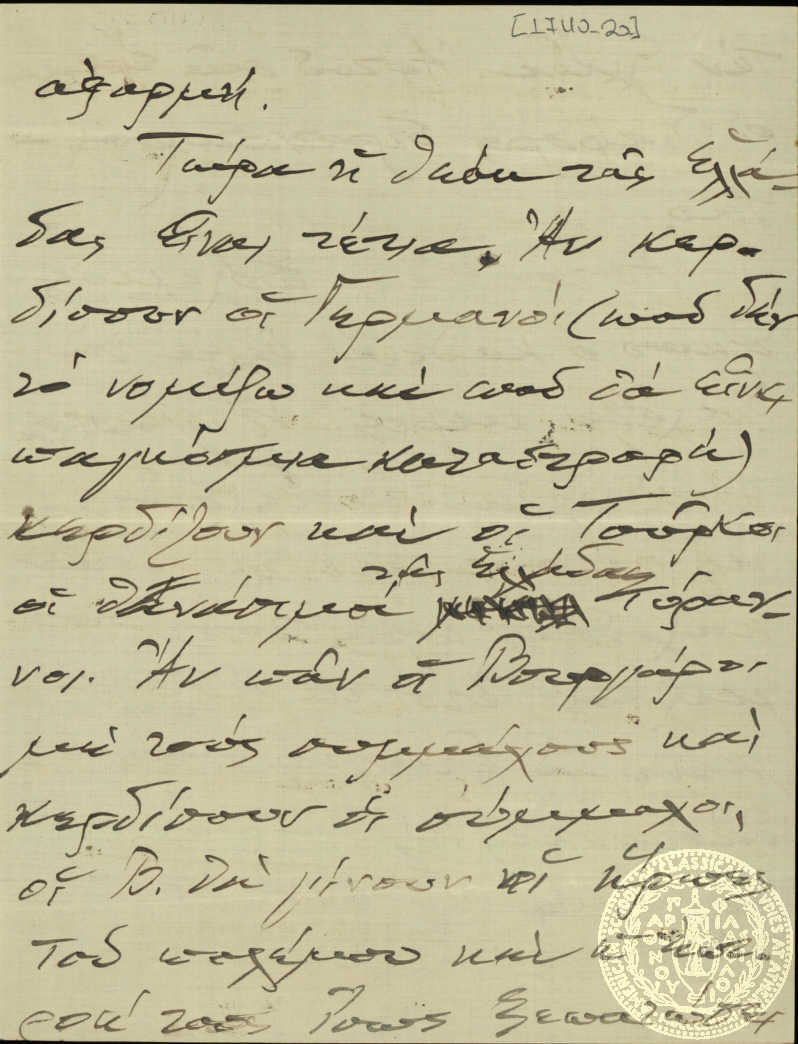 [1740-20]
ἀφορμή.
Τώρα ἡ θέση τῆς Ἑλλά-
δας εἶναι τέτια. Ἂν κερ-
δίσουν οἱ Γερμανοί (ποὺ δὲν
τὸ νομίζω καὶ ποὺ θὰ εἶναι
παγκόσμια καταστροφή)
κερδίζουν καὶ οἱ Τοῦρκοι
τῆς Ἑλλάδας
οἱ θανάσιμοί Τύραν-
νοι. Ἂν πᾶν οἱ Βουργάροι
μὲ τοὺς συμμάχους καὶ
κερδίσουν οἱ σύμμαχοι,
οἱ Β. θὰ γίνουν οἱ ἥρωες
τοῦ πολέμου καὶ ἡ
τους ἴσως